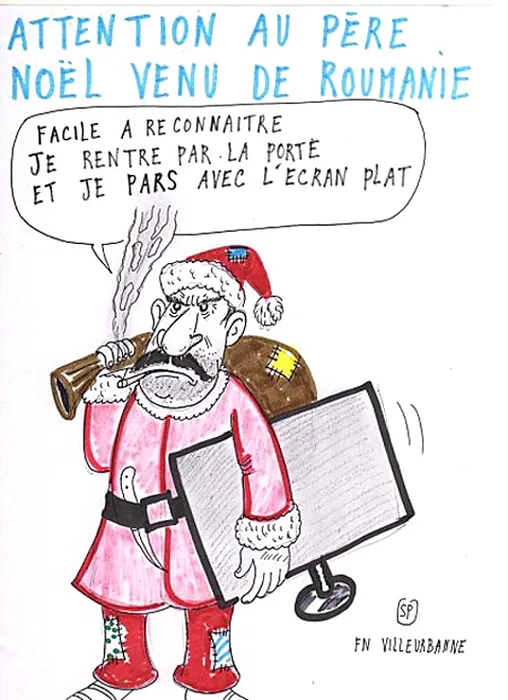 ATTENTION AU PÈRE
NOËL VENU DE ROUMANIE
FACILE A RECONNAITRE
JE RENTRE PAR.LA PORTE
ET JE PARS AVEC L'ECRAN PLAT
SP
FN VILLEURBANNE